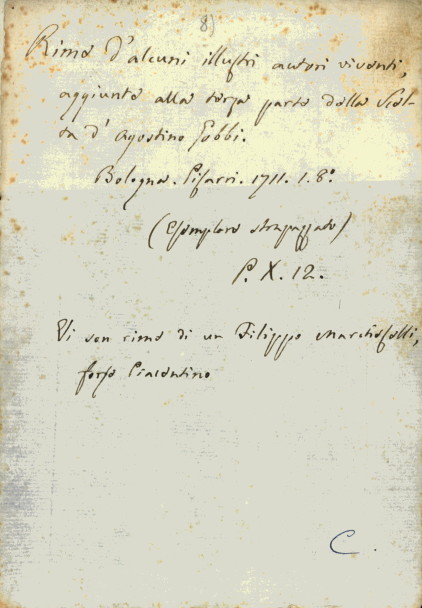 8)
Rime d'alcuni illustri autori viventi,
aggiunte alla terza parte della Scel-
ta d'Agostino Gobbi.
Bologna. Pisarri. 1711. 1. 8º.
(Esemplare strapazzato)
P. X. 12.
Vi son rime di un Filippo Marchiselli,
forse Piacentino
C.